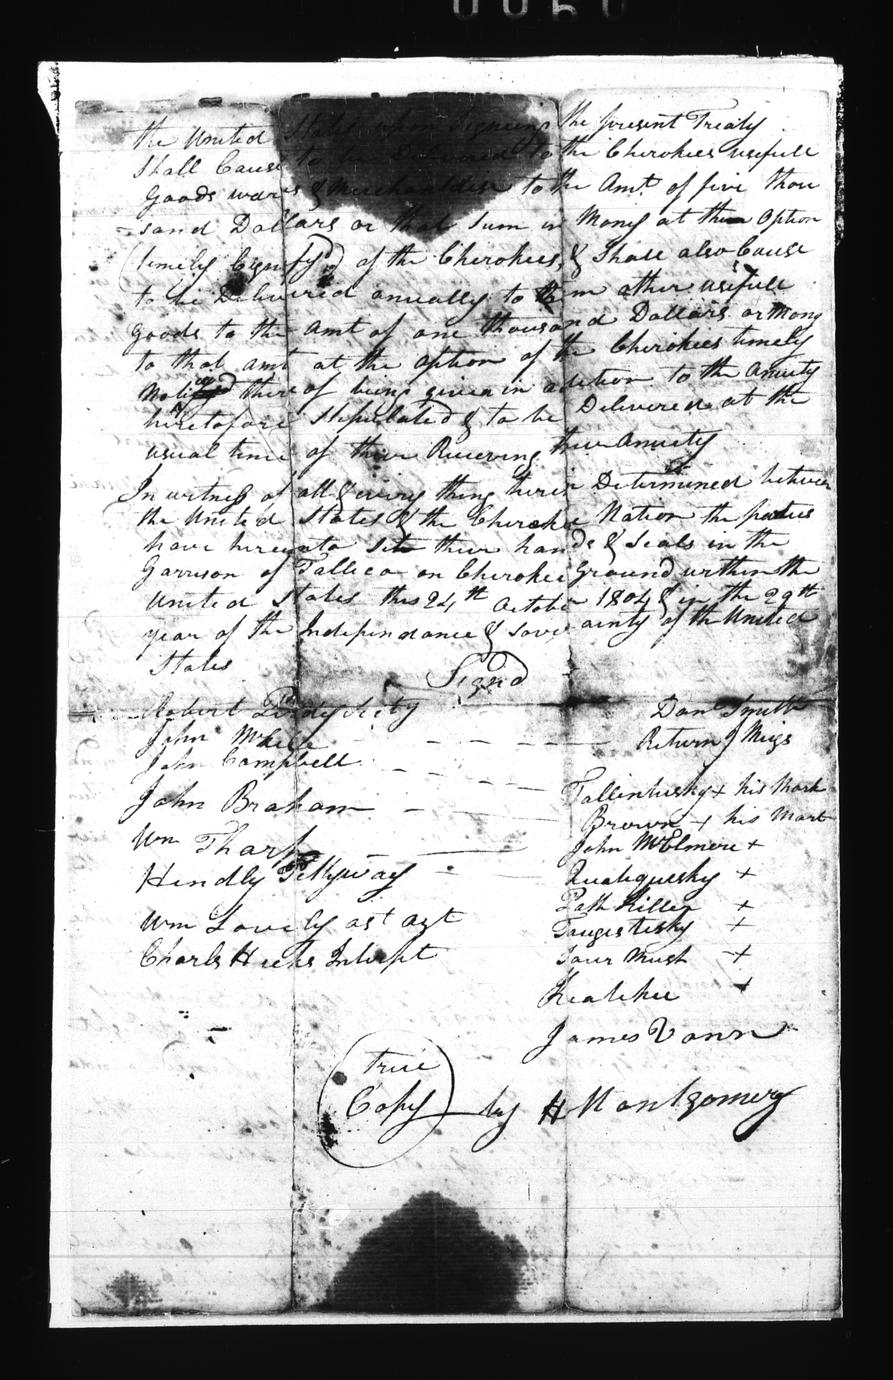 0060
the United States upon Signeing the present Treaty
Shall Cause to be Delivered to the Cherokees usefull
Goods wares & Merchandise to the Amt. of five thou
sand Dollars or that Sum in Money at the Option
(timely Signify'd) of the Cherokees, & Shall also Cause
to be Delivered anually to them other usefull
goods to the amt of one thousand Dollars or Mony
to that amt at the option of the Cherokees timely
thereof being given in adition to the Anuity
heretofore Stipulated & to be Delivered at the
usual time of their Receiving their Anuity
In witness of all & every thing herein Determined between
the United States & the Cherokee Nation the parties
have hereunto Set their hands & Seals in the
Garrison of Tallico on Cherokee Ground within the
United States this 24th October 1804 & in the 29th
year of the Independance & Soverainty of the United
States
Signd
Robert
Danl Smith
John McKee
Return J Migs
John Campbell
Tallintusky + his Mark
John Braham
Brown + his Mark
Wm Tharp
John McElmore +
Hendly Pettyway
Quatequsky +
Path Killer +
Wm Lovely ast agt
Taugustisky +
Charls Hicks Interpt
Sour Mush +
Keatehee +
James Vann
true
Copy by H Montgomery